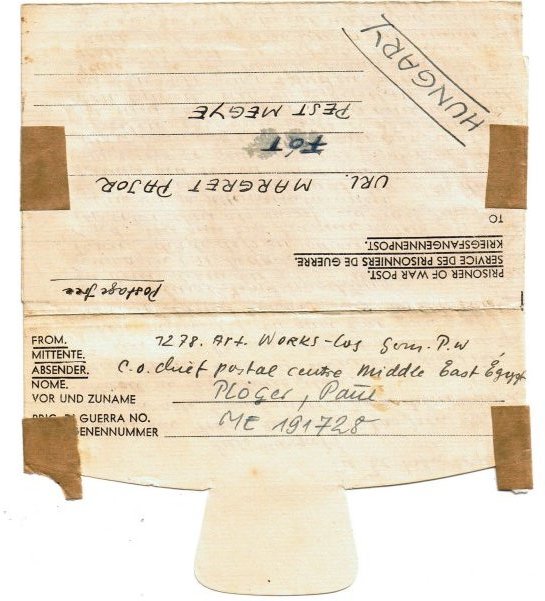 PRISONER OF WAR POST.
SERVICE DES PRISONNIERS DE GUERRE.
KRIEGSFANGENNENPOST.
Postage free
TO
URL. MARGRET PAJOR
FÓT
PEST MEGYE
HUNGARY
FROM. 1278. Art. WORKS-Coy Germ. P.W
MITTENTE. c.o. chief postal centre Middle East Egypt
ABSENDER.
NOME. Plöger, Paul
VOR UND ZUNAME
PRIG. DI GUERRA NO. ME 191728
GENENNUMMER